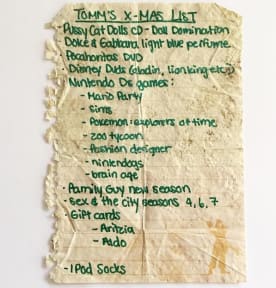 TOMM'S X-MAS LIST
- Pussy Cat Dolls CD - Doll Domination
- Dolce & Gabbana light blue perfume
- Pocahontas DVD
- Disney Dvds (aladin, lion king etc)
- Nintendo Ds games:
- Mario Party
- Sims
- Pokemon: explorers of time
- zoo tycoon
- fashion designer
- nintendogs
- brain age
- Family Guy new season
- Sex & the city seasons 4, 6, 7
- Gift cards
- Aritzia
- Aldo
- IPod Socks